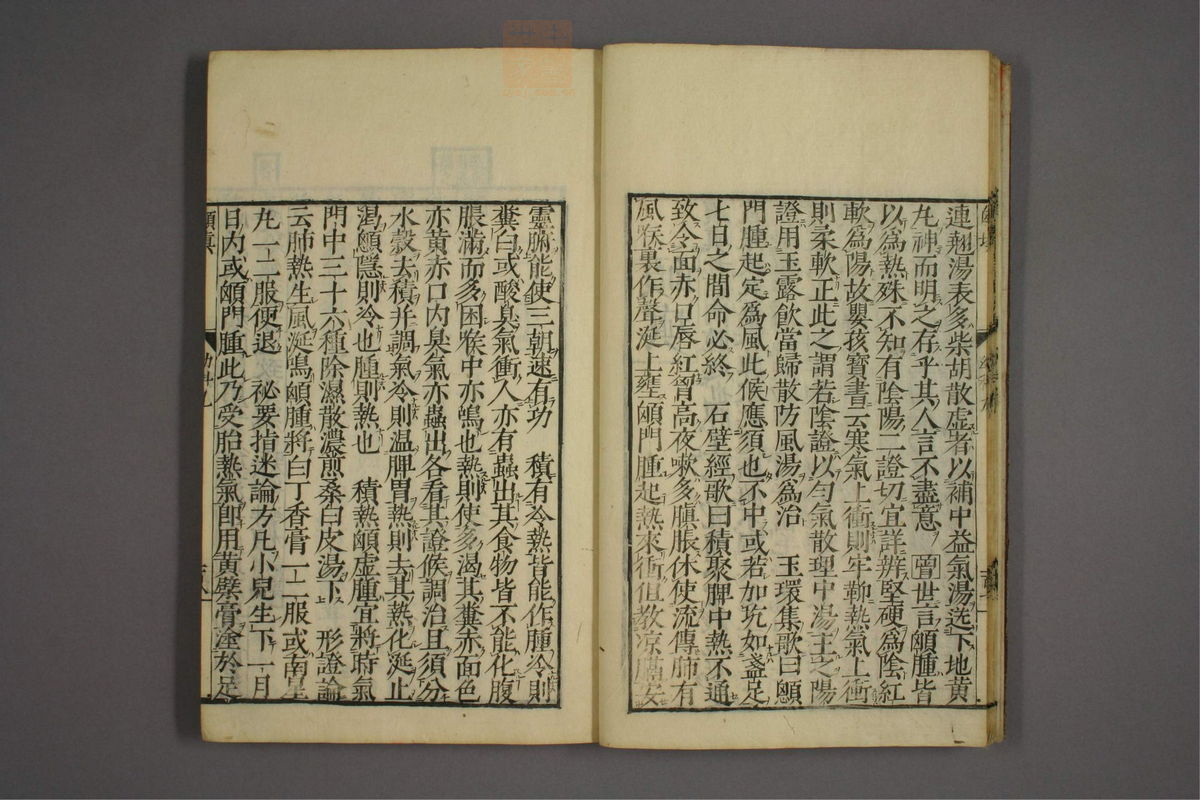 連翹湯表多柴胡散虛者以補中益氣湯送下地黃
丸神而明之存乎其人言不盡意 曽世言顖腫皆
以爲熱殊不知有陰陽二證切宜詳辨堅硬爲陰紅
軟爲陽故嬰孩寶書云寒氣上衝則牢靭熱氣上衝
則柔軟正此之謂若陰證以勻氣散理中湯主之陽
證用玉露飲當歸散防風湯爲治 玉環集歌曰顖
門腫起定爲風此候應須也不中或若如坑如盞足
七日之間命必終 石壁經歌曰積聚脾中熱不通
致令面赤口唇紅胷高夜嗽多膹脹休使流傳肺有
風喉裏作聲涎上壅顖門腫起熱來衝但教凉膈安
靈腑能使三朝速有功 積有冷熱皆能作腫冷則
糞白或酸臭氣衝人亦有蟲出其食物皆不能化腹
脹滿而多困喉中亦鳴也熱則使多渴其糞赤面色
亦黃赤口內臭氣亦蟲出各看其證候調治且須分
水穀去積并調氣冷則温脾胃熱則去其熱化涎止
渴顖隱則冷也腫則熱也 積熱顖虛腫宜將時氣
門中三十六種除濕散濃煎桑白皮湯下 形證論
云肺熱生風涎鳴顖腫將白丁香膏一二服或南星
丸一二服便退 秘要指迷論方凡小兒生下一月
日內或顖門腫此乃受胎熱氣卽用黃檗膏塗於足